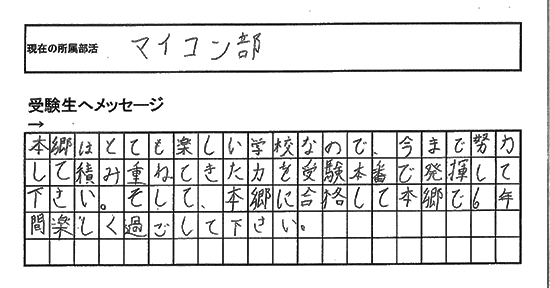 現在の所属部活 マイコン部
受験生へメッセージ
→
本郷はとても楽しい学校なので、今まで努力
して積み重ねてきた力を受験本番で発揮して
下さい。そして、本郷に合格して本郷で6年
間楽しく過ごして下さい。